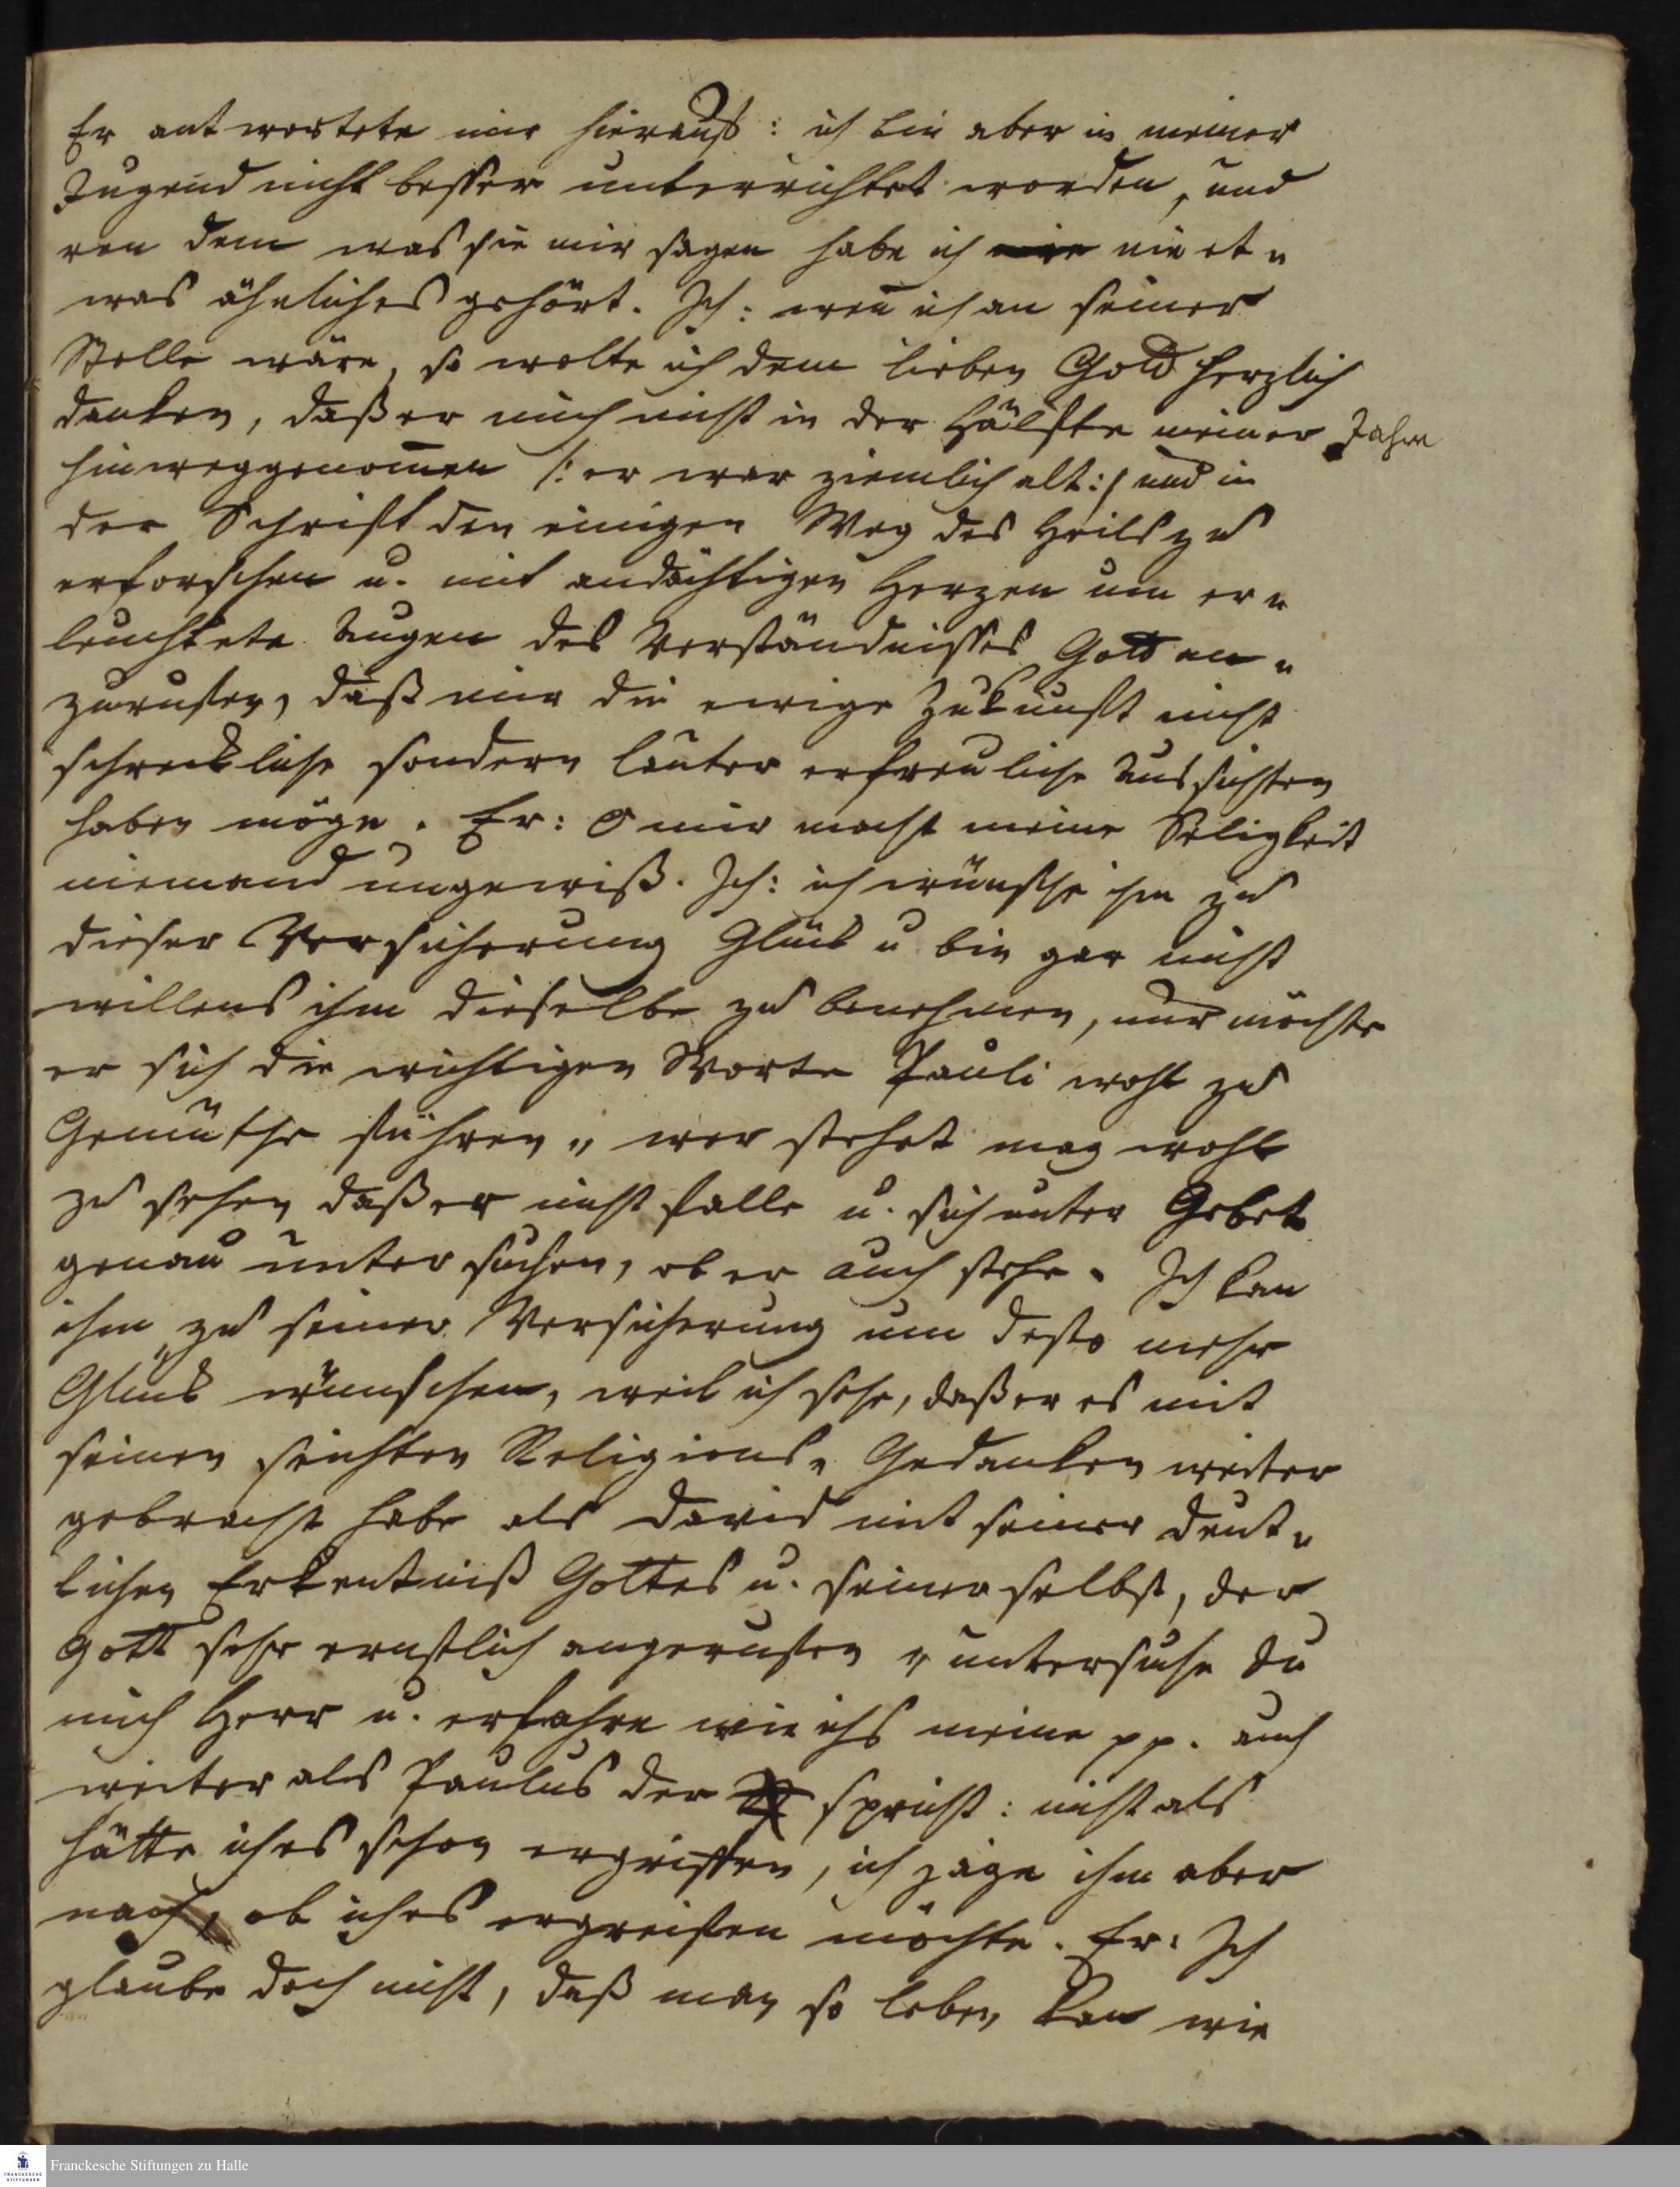 Er antwortete mir hierauf: ich bin aber in meiner
Jugend nicht besser unterrichtet worden, und
von dem was sie mir sagen habe ich nie et„
was ähnliches gehört. Ich: weñ ich an seiner
Stelle wäre, so wolte ich dem lieben Gott herzlich
danken, daß er mich nicht in der Hälfte meiner Jahre
hinweggenom̄en /: er war ziemlich alt :/ und in
der Schrift den einigen Weg des Heils zu
erforschen u. mit andächtigen Herzen um er„
leuchtete Augen des Verständnisses Gott an„
zurufen, daß mir die ewige Zukunft nicht
schreckliche sondern lauter erfreuliche Aussichten
haben möge. Er: O mir macht meine Seligkeit
niemand ungewiß. Ich: ich wünsche ihm zu
dieser Versicherung Glück u bin gar nicht
willens ihm dieselbe zu benehmen, nur möchte
er sich die wichtigen Worte Pauli wohl zu
Gemüthe führen„ wer stehet mag wohl
zu sehen daß er nicht falle u. sich unter Gebet
genau untersuchen, ob er auch stehe. Ich kan
ihm zu seiner Versicherung um desto mehr
Glück wünschen, weil ich sehe, daß er es mit
seinen seichten Religions„ Gedanken weiter
gebracht habe als David mit seiner deut„
lichen Erkentniß Gottes u. seiner selbst, der
Gott sehr ernstlich angerufen „untersuche du
mich Herr u. erfahre wie ichs meine pp. auch
weiter als Paulus der spricht: nicht als
hätte ich es schon ergriffen, ich jage ihm aber
nach, ob ich es ergreifen möchte. Er: Ich
glaube doch nicht, daß man so leben kan wie
Franckesche Stiftungen zu Halle
FRANCKESCHE
STIFTUNGEN